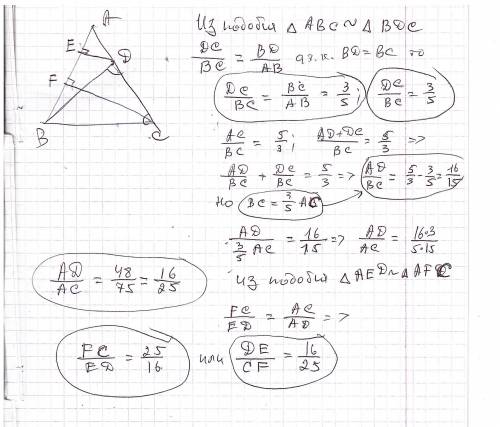 A
E
D
F
B
C
Из подобия △ABC ~ △BDC
DC/BC = BD/AB а т.к. BD=BC то
DC/BC = BC/AB = 3/5; DC/BC = 3/5
AC/BC = 5/3; AD+DC/BC = 5/3 =>
AD/BC + DC/BC = 5/3 => AD/BC = 5/3 - 3/5 = 16/15
Но BC = 3/5 AC
AD/(3/5 AC) = 16/15 => AD/AC = 16·3/5·15
AD/AC = 48/75 = 16/25
Из подобия △AED ~ △AFC
FC/ED = AC/AD =>
FC/ED = 25/16 или DE/CF = 16/25